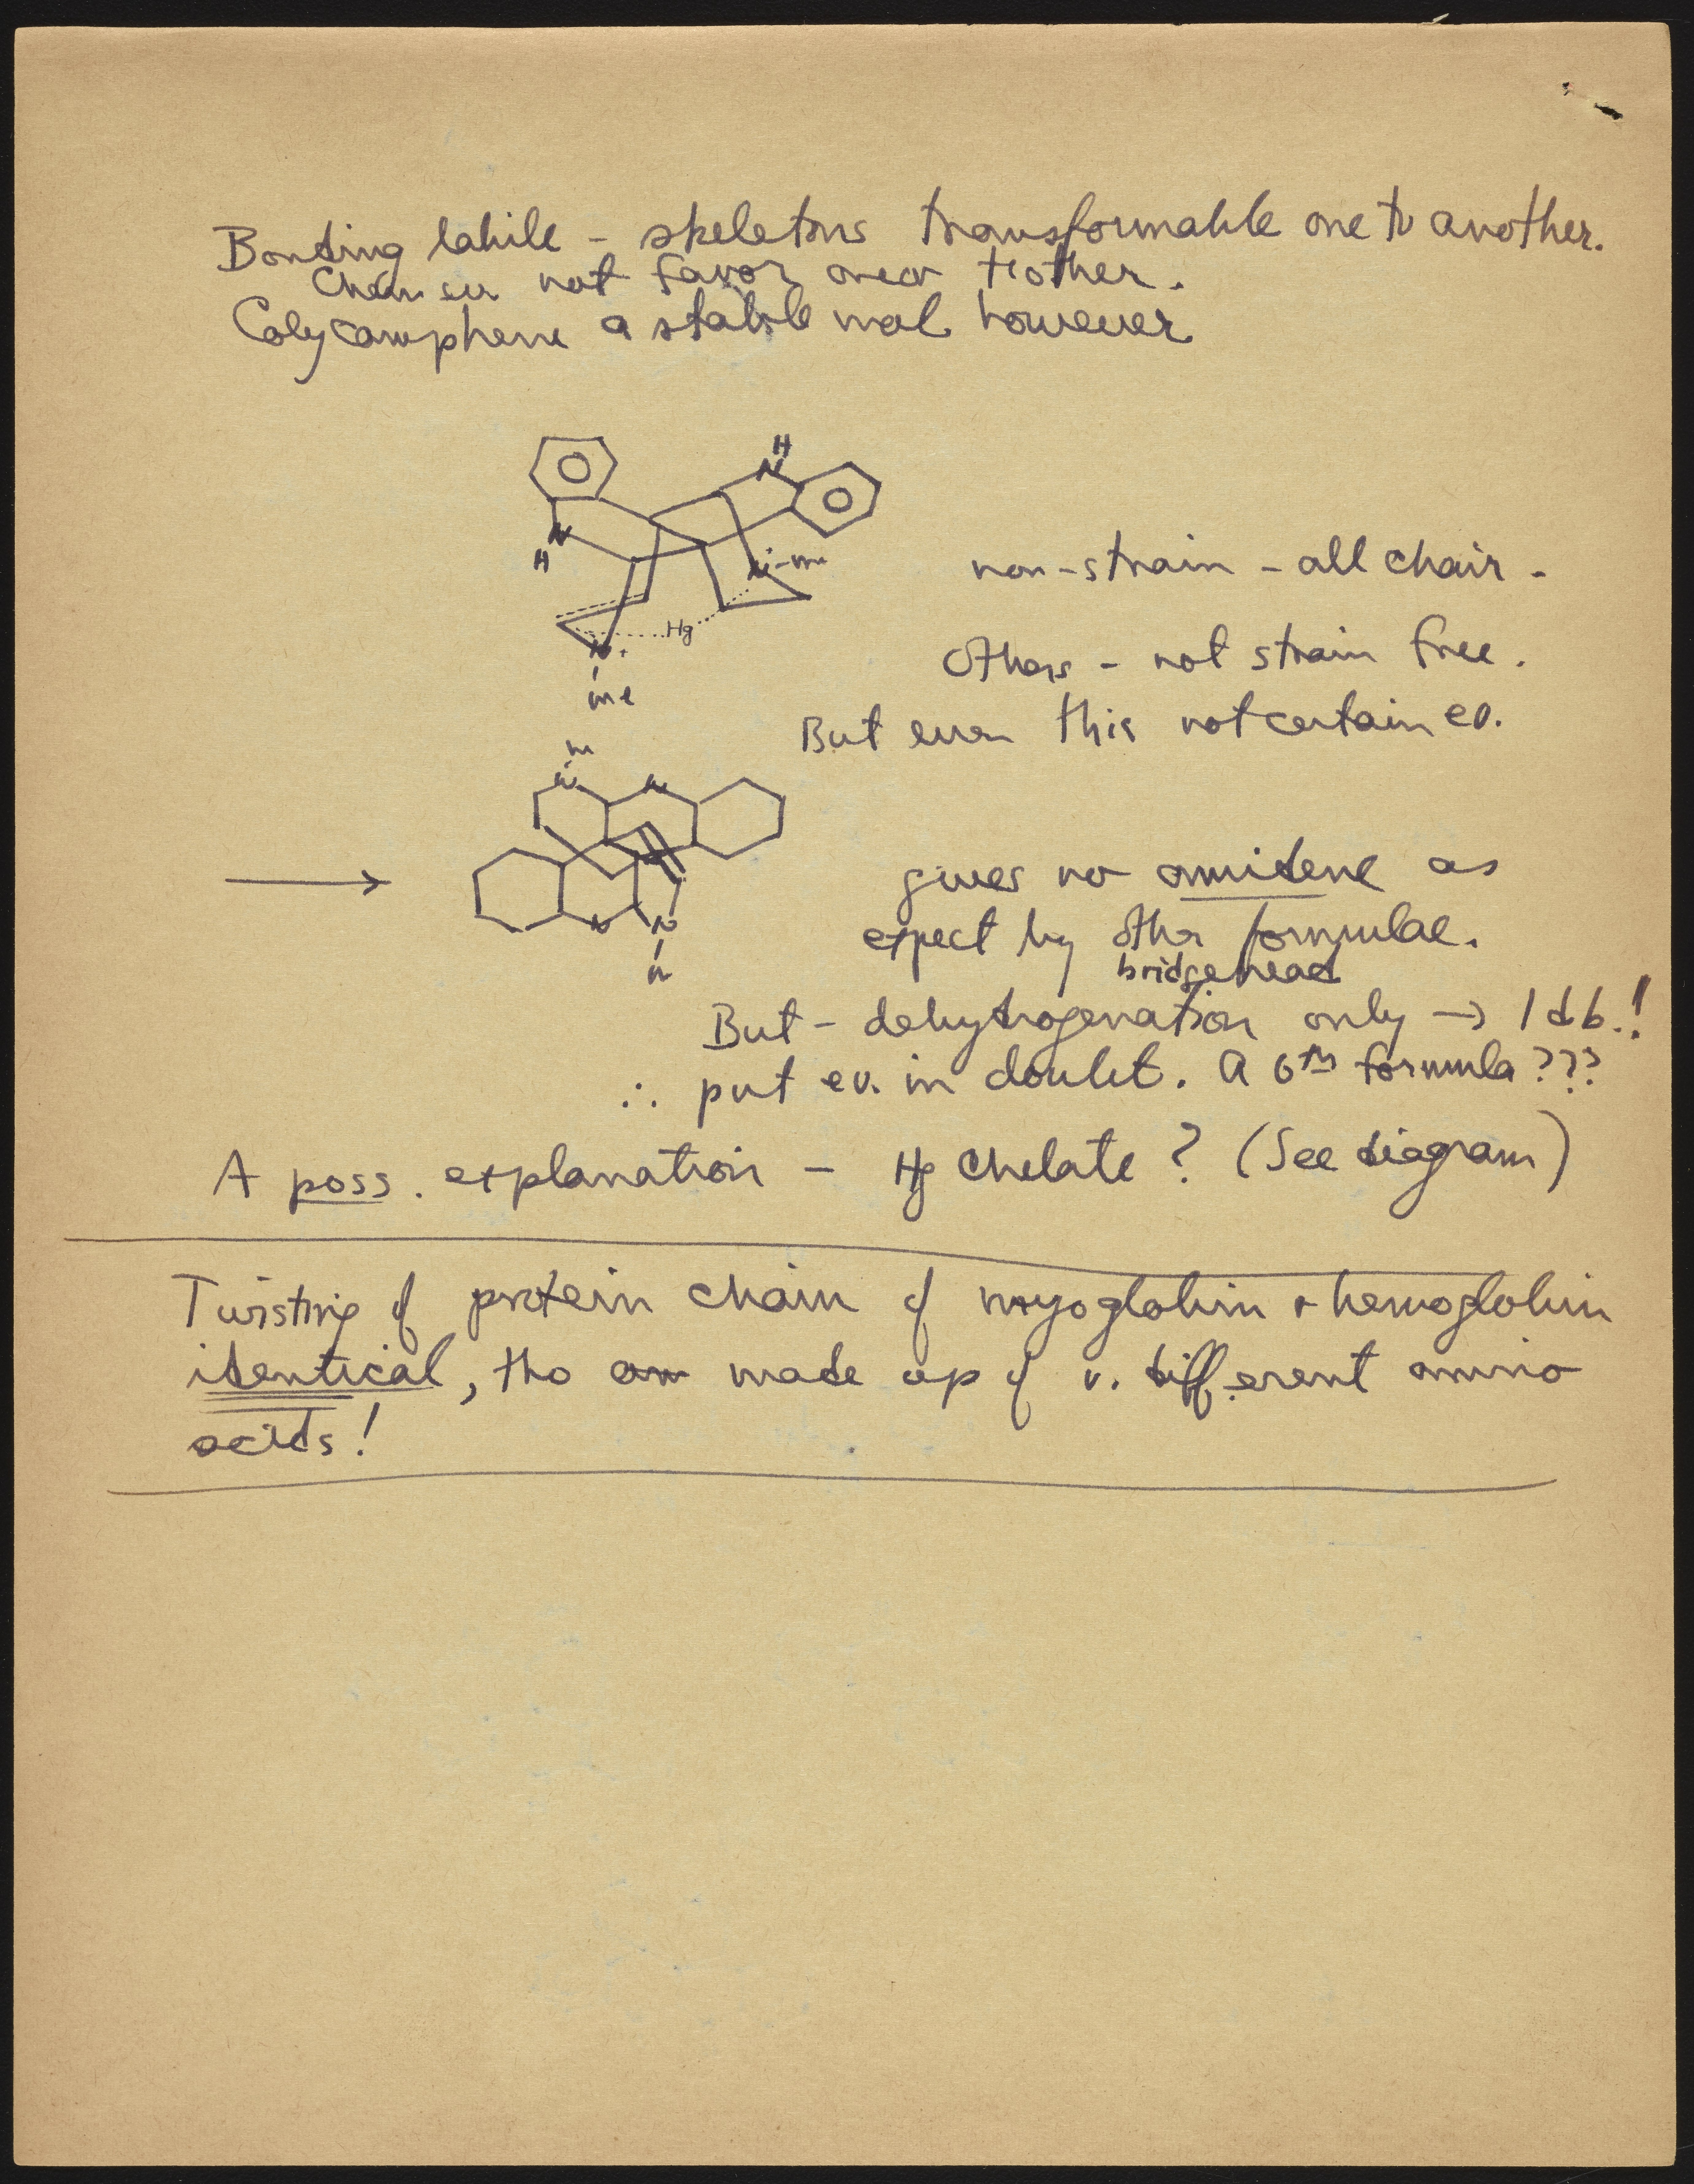 Bonding labile - skeletons transformable one to another.
Chem ev not favor one or t'other.
Calycanphene a stable mol however.
H
N
N
H
N-me
Hg
N+
me
non-strain - all chair -
Others - not strain free.
But even this not certain ev.
m
N
N
→
N
N
m
gives no amidene as
expect by other formulae.
bridgehead
But - dehydrogenation only → 1 db.!
∴ put ev. in doubt. A 6th formula???
A poss. explanation - Hg chelate? (See diagram)
Twisting of protein chain of myoglobin + hemoglobin
identical, tho made up of v. different amino
acids!